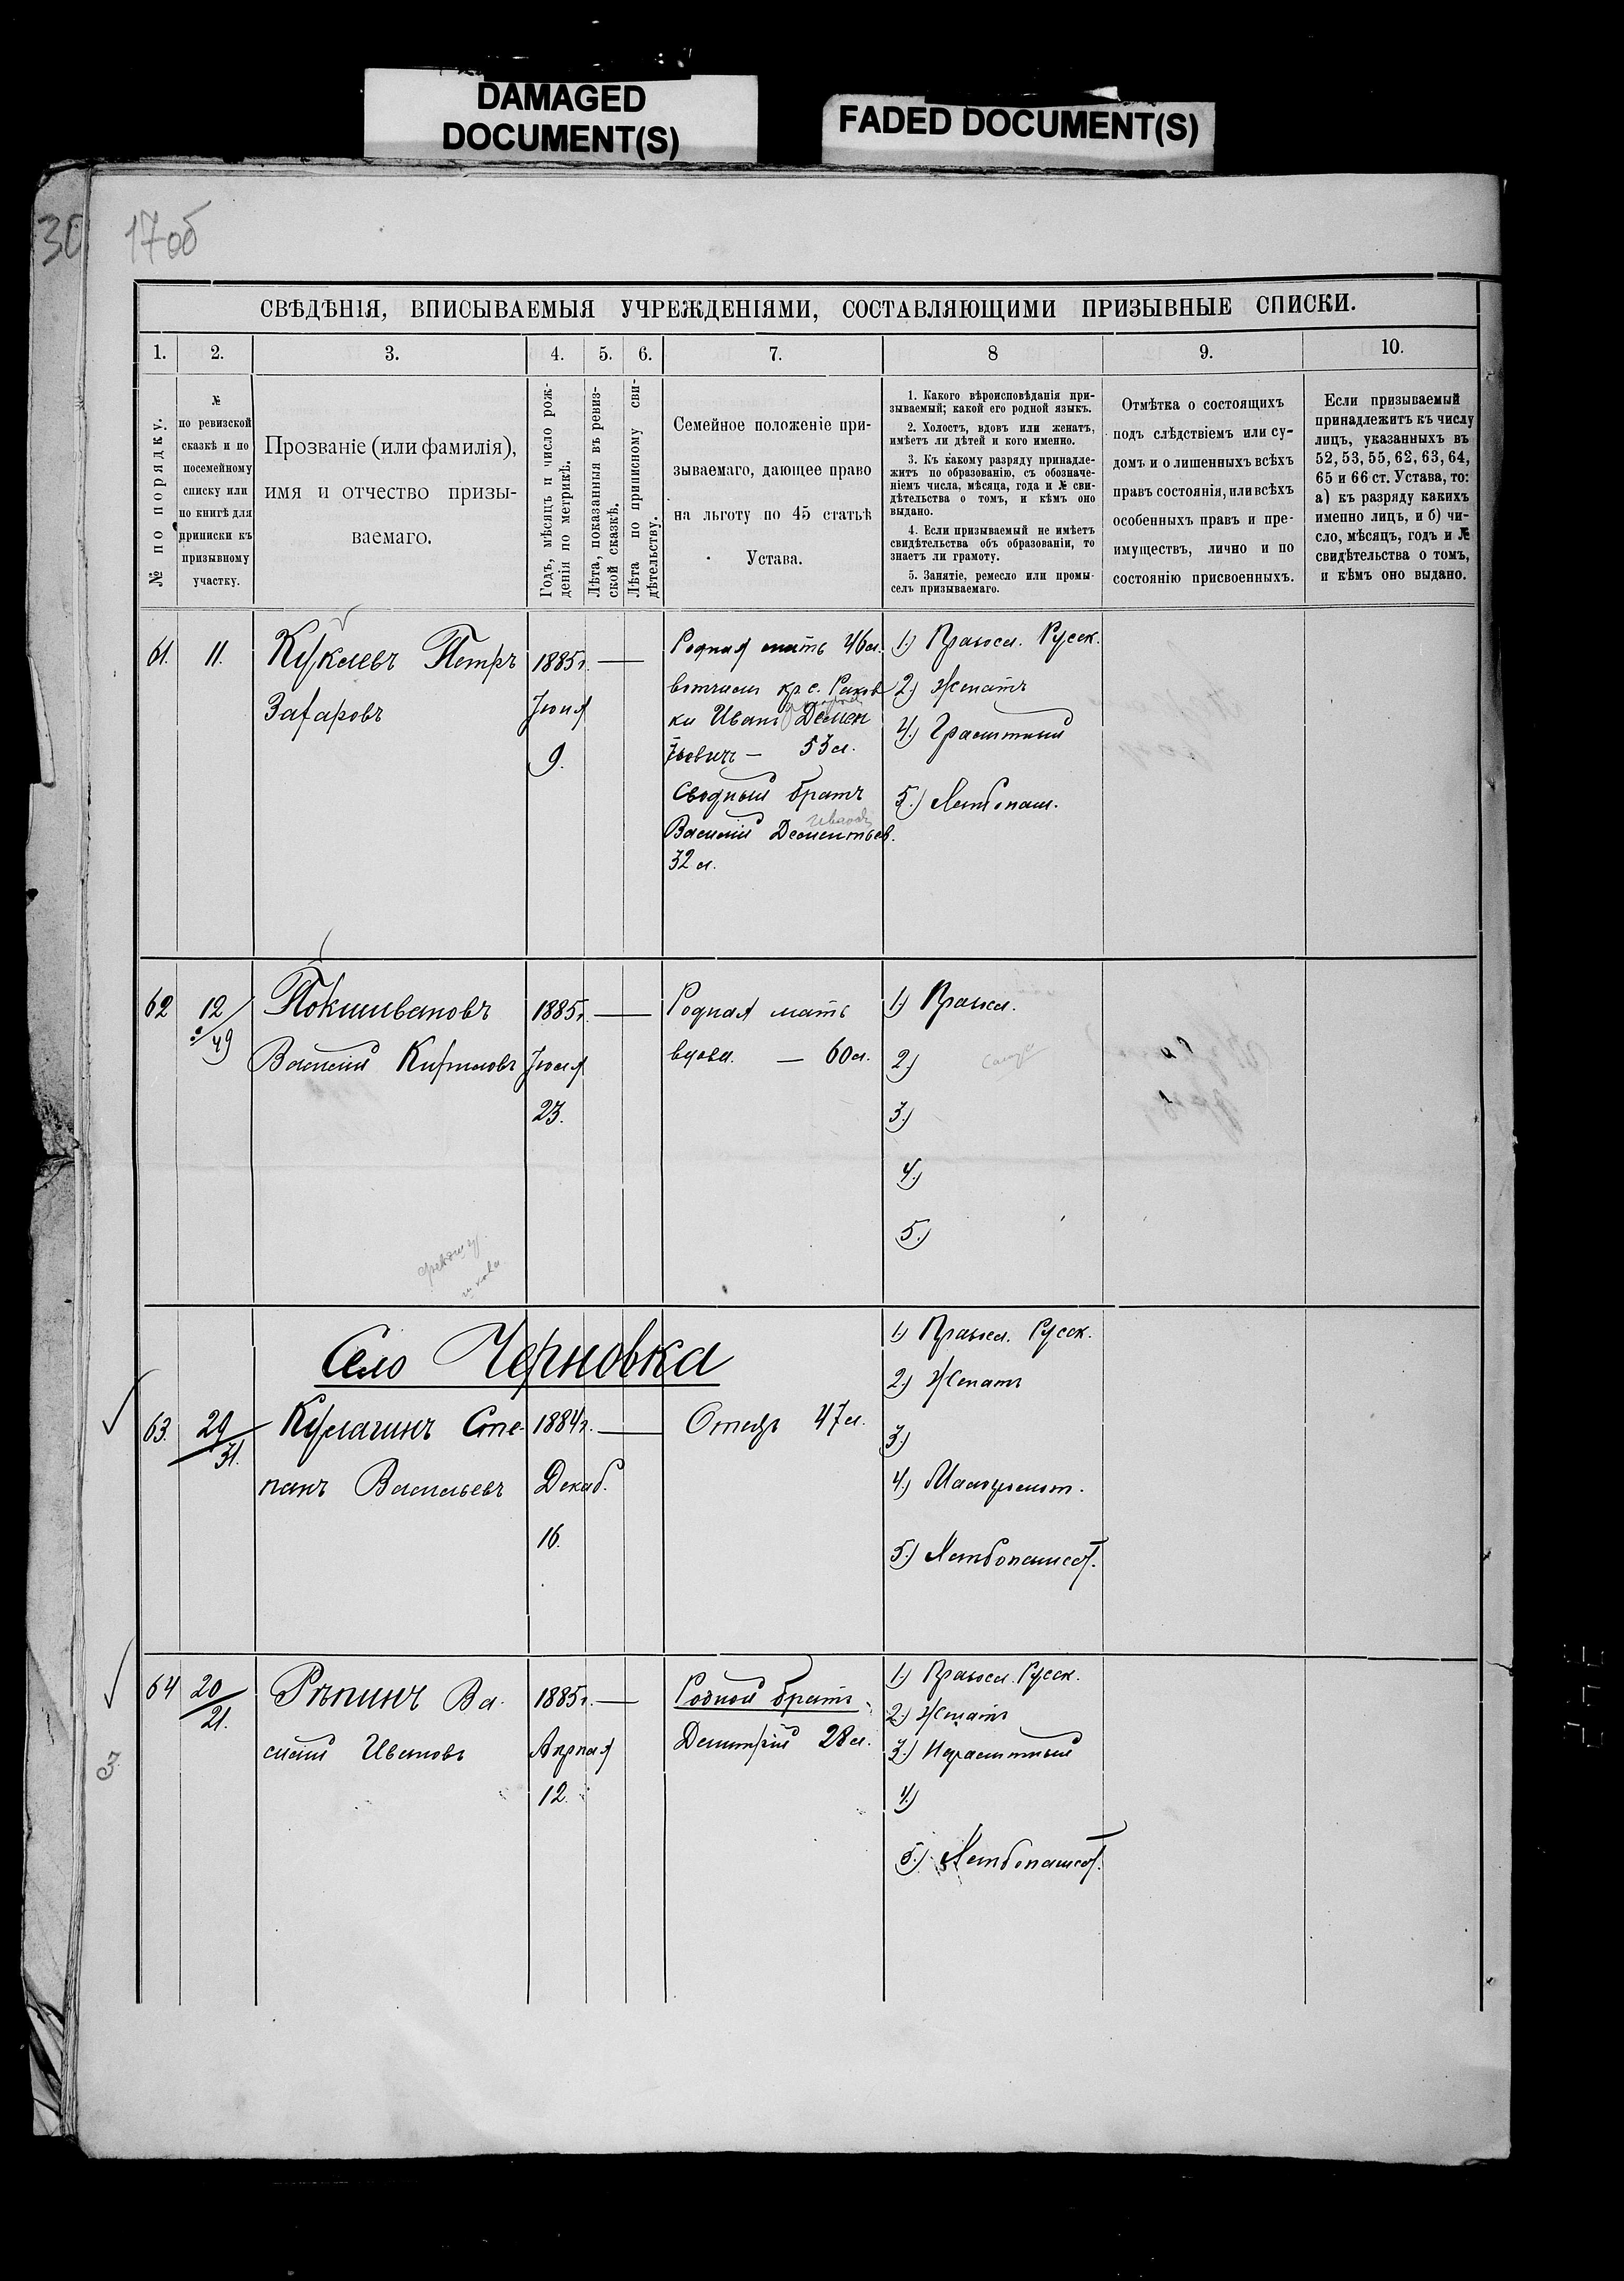 DAMAGED
DOCUMENT(S)
FADED DOCUMENT(S)
30
17об
СВѢДѢНІЯ, ВПИСЫВАЕМЫЯ УЧРЕЖДЕНІЯМИ, СОСТАВЛЯЮЩИМИ ПРИЗЫВНЫЕ СПИСКИ.
1. 2. 3. 4. 5. 6. 7. 8 9. 10.
№ по порядку.
№
по ревизской
сказкѣ и по
посемейному
списку или
по книгѣ для
приписки къ
призывному
участку.
Прозваніе (или фамилія),
имя и отчество призы-
ваемаго.
Годъ, мѣсяцъ и число рож-
денія по метрикѣ.
Лѣта, показанныя въ ревиз-
ской сказкѣ.
Лѣта по приписному сви-
дѣтельству.
Семейное положеніе при-
зываемаго, дающее право
на льготу по 45 статьѣ
Устава.
1. Какого вѣроисповѣданія при-
зываемый; какой его родной языкъ.
2. Холостъ, вдовъ или женатъ,
имѣетъ ли дѣтей и кого именно.
3. Къ какому разряду принадле-
житъ по образованію, съ обозначе-
ніемъ числа, мѣсяца, года и № сви-
дѣтельства о томъ, и кѣмъ оно
выдано.
4. Если призываемый не имѣетъ
свидѣтельства объ образованіи, то
знаетъ ли грамоту.
5. Занятіе, ремесло или промы-
селъ призываемаго.
Отмѣтка о состоящихъ
подъ слѣдствіемъ или су-
домъ и о лишенныхъ всѣхъ
правъ состоянія, или всѣхъ
особенныхъ правъ и пре-
имуществъ, лично и по
состоянію присвоенныхъ.
Если призываемый
принадлежитъ къ числу
лицъ, указанныхъ въ
52, 53, 55, 62, 63, 64,
65 и 66 ст. Устава, то:
а) къ разряду какихъ
именно лицъ, и б) чи-
сло, мѣсяцъ, годъ и №
свидѣтельства о томъ,
и кѣмъ оно выдано.
61. 11.
Куклевъ Петръ
Захаровъ
1885г.
Іюня
9.
Родная мать 46л.
вотчимъ кр. с. Раков
ки Иванъ Демен
тьевичъ — 53л.
Сводный братъ
Иванов
Василій Дементьев.
32 л.
1) Правосл. Русск.
2) Женатъ
4) Грамотный
5) Хлебопаш.
62 12/49
Покшивановъ
Василій Кириловъ
1885г.
Іюля
23.
Родная мать
вдова. — 60л.
1) Правосл.
2)
3)
4)
5)
Село Черновка
63. 29/31.
Кулагинъ Сте-
панъ Васильевъ
1884г.
Декаб.
16.
Отецъ 47л.
1) Правосл. Русск.
2) Женатъ
3)
4) Малограмот.
5) Хлебопашест.
64 20/21.
Рѣпинъ Ва-
силій Ивановъ
1885г.
Апрля
12.
Родной братъ
Димитрій 28л.
1) Правосл. Русск.
2) Женатъ
3) Неграмотный
4)
5) Хлебопашест.